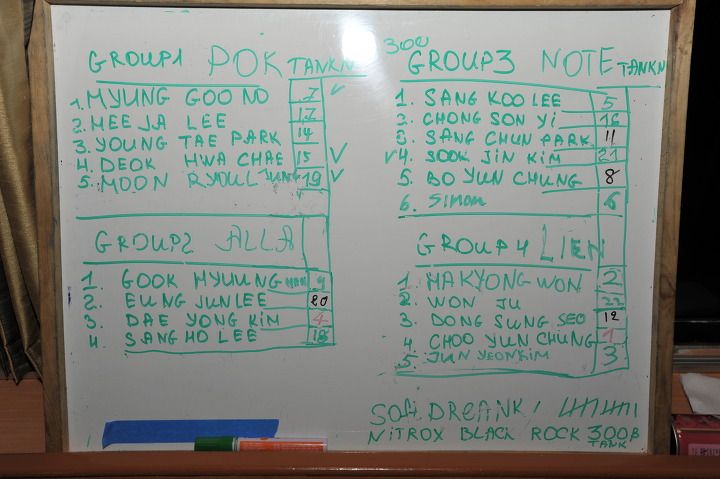 GROUP1 POK TANKN
1. MYUNG GOO NO 7 ✓
2 HEE JA LEE 17
3 YOUNG TAE PARK 14
4. DEOK HWA CHAE 15 ✓
5. MOON RYOUL JUNG 19 ✓
GROUP2 ALLA
1. GOOK MYUUNG 9
2. EUNG JUN LEE 20
3. DAE YONG KIM 4
4 SANG HO LEE 18
300
GROUP3 NOTE TANKN
1. SANG KOO LEE 5
2. CHONG SON Yi 16
3 SANG CHUN PARK 11
✓4. SOOK JIN KIM 21
5. BO YUN CHUNG 8
6. Simon 6
GROUP4 LIEN
1 HAKYONG WON 2
2 WON JU 22
3. DONG SUNG SEO 12
4 CHOO YUN CHUNG 1
5. JUN YEONKIM 3
SOft DREANK!
NiTROX BLACK ROCK 300B
TANK